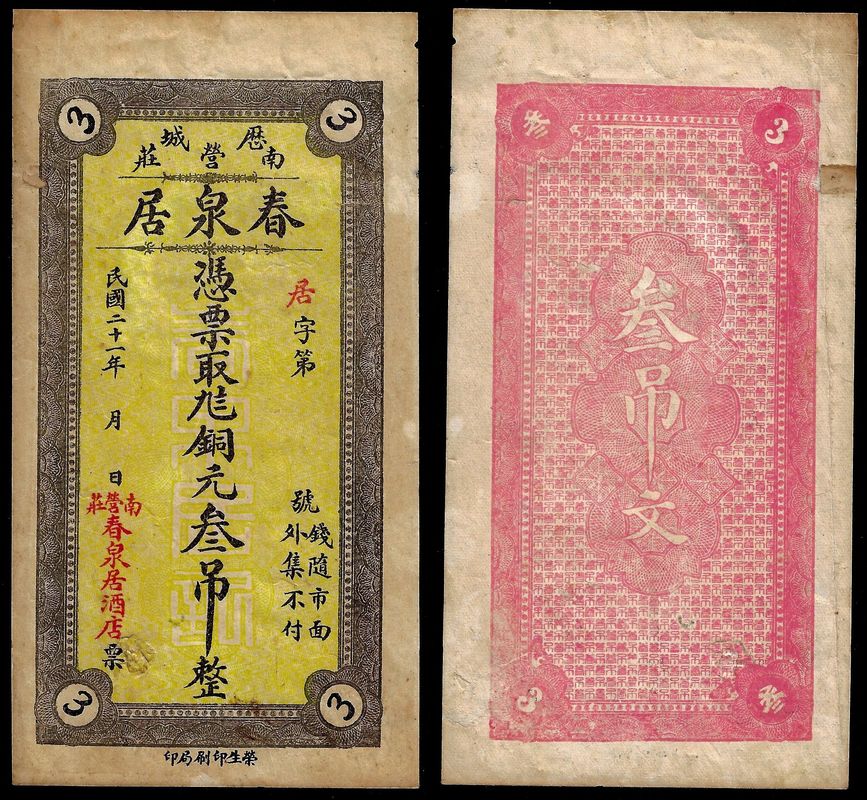 3
3
歷城
南營莊
春泉居
居字第
號
錢隨市面
外集不付
憑票取銅元叁吊整
民國二十一年 月 日
南營莊
春泉居酒店票
3
3
榮生印刷局印
参
3
叁吊文
3
参